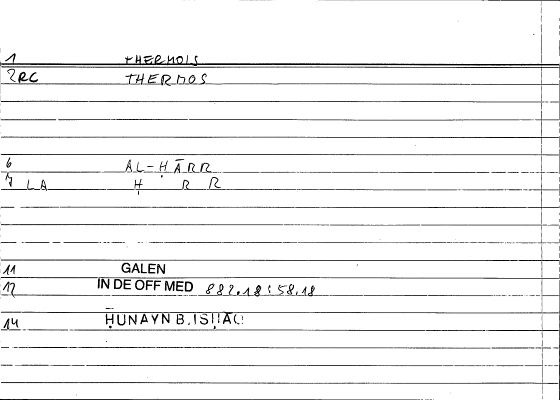 1 THERMOIS
2RC THERMOS
6 AL-ḤĀRR
7 LA Ḥ R R
11 GALEN
12 IN DE OFF MED 882.18:58.18
14 ḤUNAYN B. ISḤĀQ